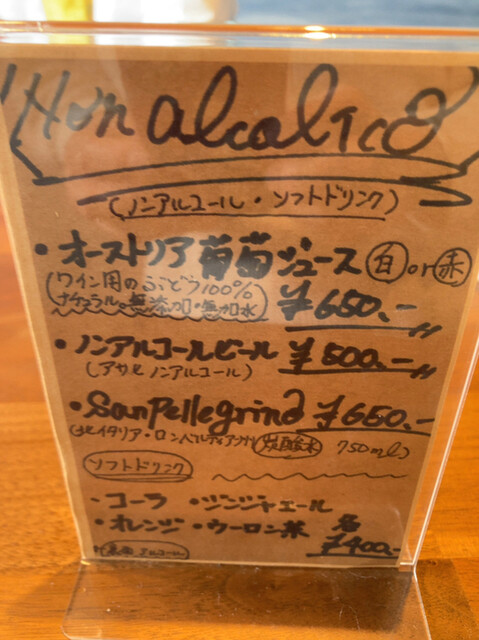 Non alcolico
(ノンアルコール・ソフトドリンク)
・オーストリア葡萄ジュース 白 or 赤
(ワイン用のぶどう100%
ナチュラル。無添加・無加水) ¥650.-
・ノンアルコールビール ¥500.-
(アサヒ ノンアルコール)
・SanPellegrino ¥650.-
(北イタリア・ロンバルディア州 炭酸水 750ml)
ソフトドリンク
・コーラ ・ジンジャエール
・オレンジ ・ウーロン茶 各
¥400.-